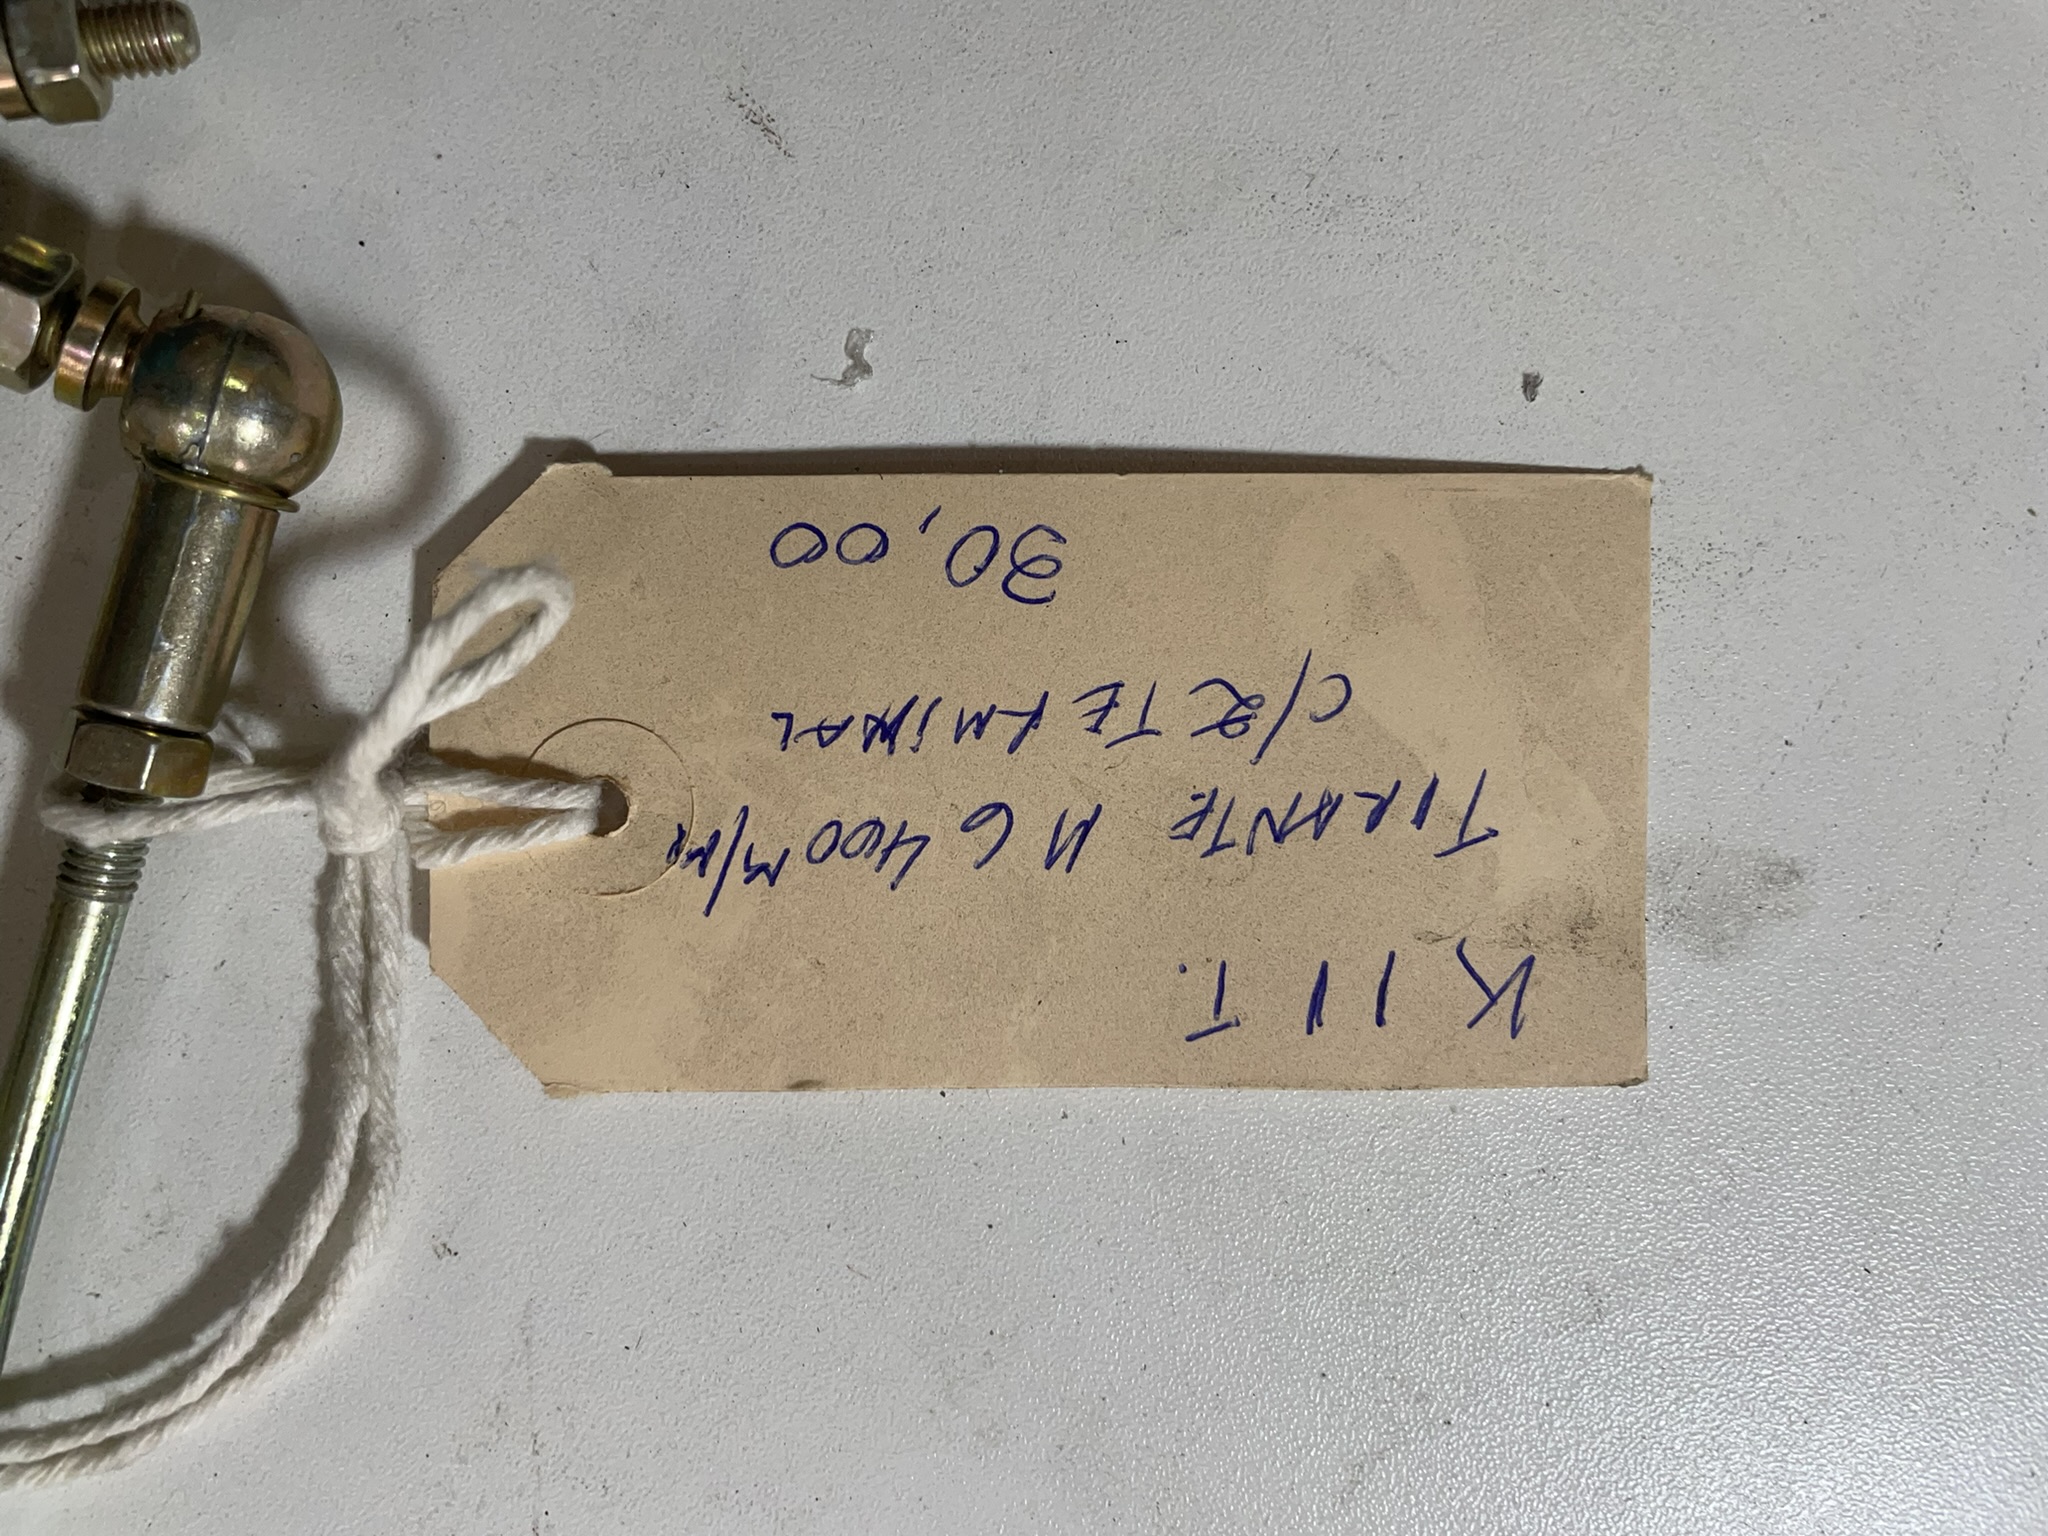 K11T.
TIRANTE M6 400 M/M
C/2 TERMINAL
30,00